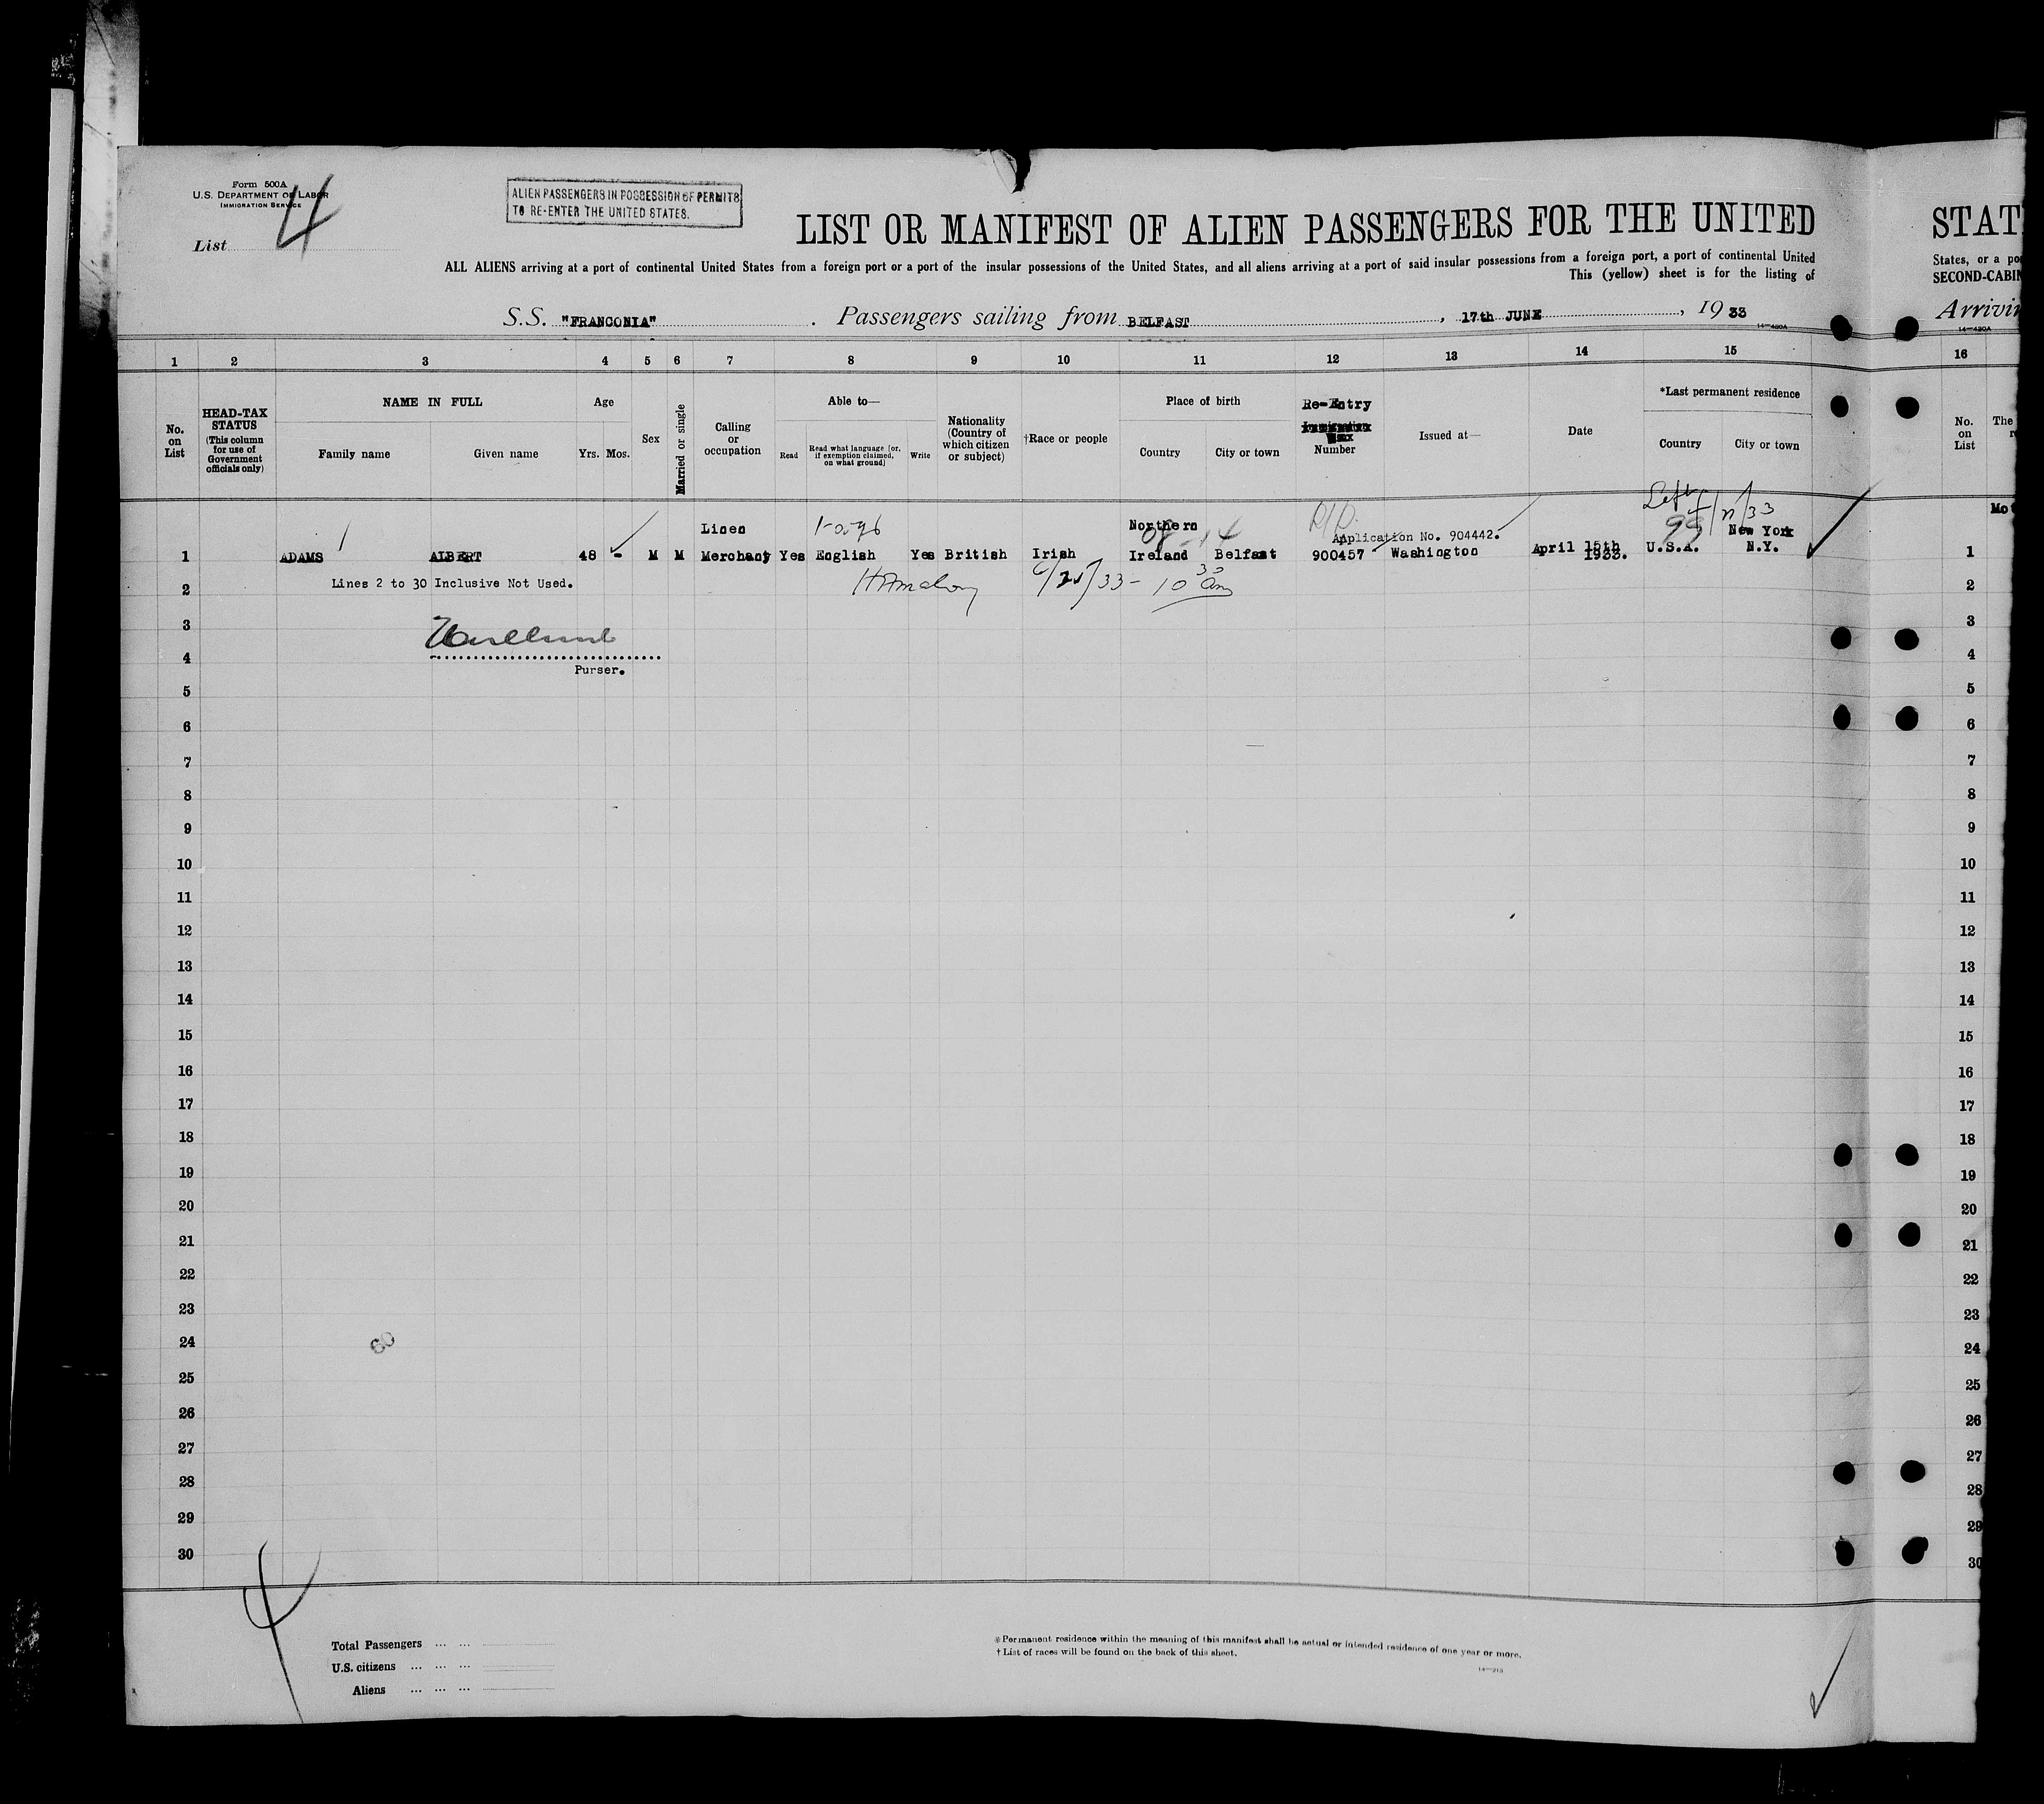 Form 500A
U.S. DEPARTMENT OF LABOR
IMMIGRATION SERVICE
List 4
ALIEN PASSENGERS IN POSSESSION OF PERMITS
TO RE-ENTER THE UNITED STATES.
LIST OR MANIFEST OF ALIEN PASSENGERS FOR THE UNITED
STAT
ALL ALIENS arriving at a port of continental United States from a foreign port or a port of the insular possessions of the United States, and all aliens arriving at a port of said insular possessions from a foreign port, a port of continental United
States, or a po
This (yellow) sheet is for the listing of
SECOND-CABIN
S.S. "FRANCONIA". Passengers sailing from BELFAST, 17th JUNE, 1933
Arrivin
14—430A
14—430A
1 2 3 4 5 6 7 8 9 10 11 12 13 14 15 16
No. on List
HEAD-TAX STATUS
(This column for use of Government officials only)
NAME IN FULL
Family name Given name
Age
Yrs. Mos.
Sex
Married or single
Calling or occupation
Able to—
Read Read what language (or, if exemption claimed, on what ground) Write
Nationality (Country of which citizen or subject)
†Race or people
Place of birth
Country City or town
Re-Entry
Immigration Visa
Number
Issued at—
Date
*Last permanent residence
Country City or town
No. on List
The
Left
99
Linen Northern New York
Mo
Application No. 904442.
1 ADAMS ALBERT 48 - M M Merchant Yes English Yes British Irish Ireland Belfast 900457 Washington April 15th 1933. U.S.A. N.Y. 1
2 Lines 2 to 30 Inclusive Not Used. 10 30 am 2
3 3
4 4
Purser.
5 5
6 6
7 7
8 8
9 9
10 10
11 11
12 12
13 13
14 14
15 15
16 16
17 17
18 18
19 19
20 20
21 21
22 22
23 23
24 24
60
25 25
26 26
27 27
28 28
29 29
30 30
Total Passengers ... ...
U.S. citizens ... ... ...
Aliens ... ... ...
*Permanent residence within the meaning of this manifest shall be actual or intended residence of one year or more.
†List of races will be found on the back of this sheet.